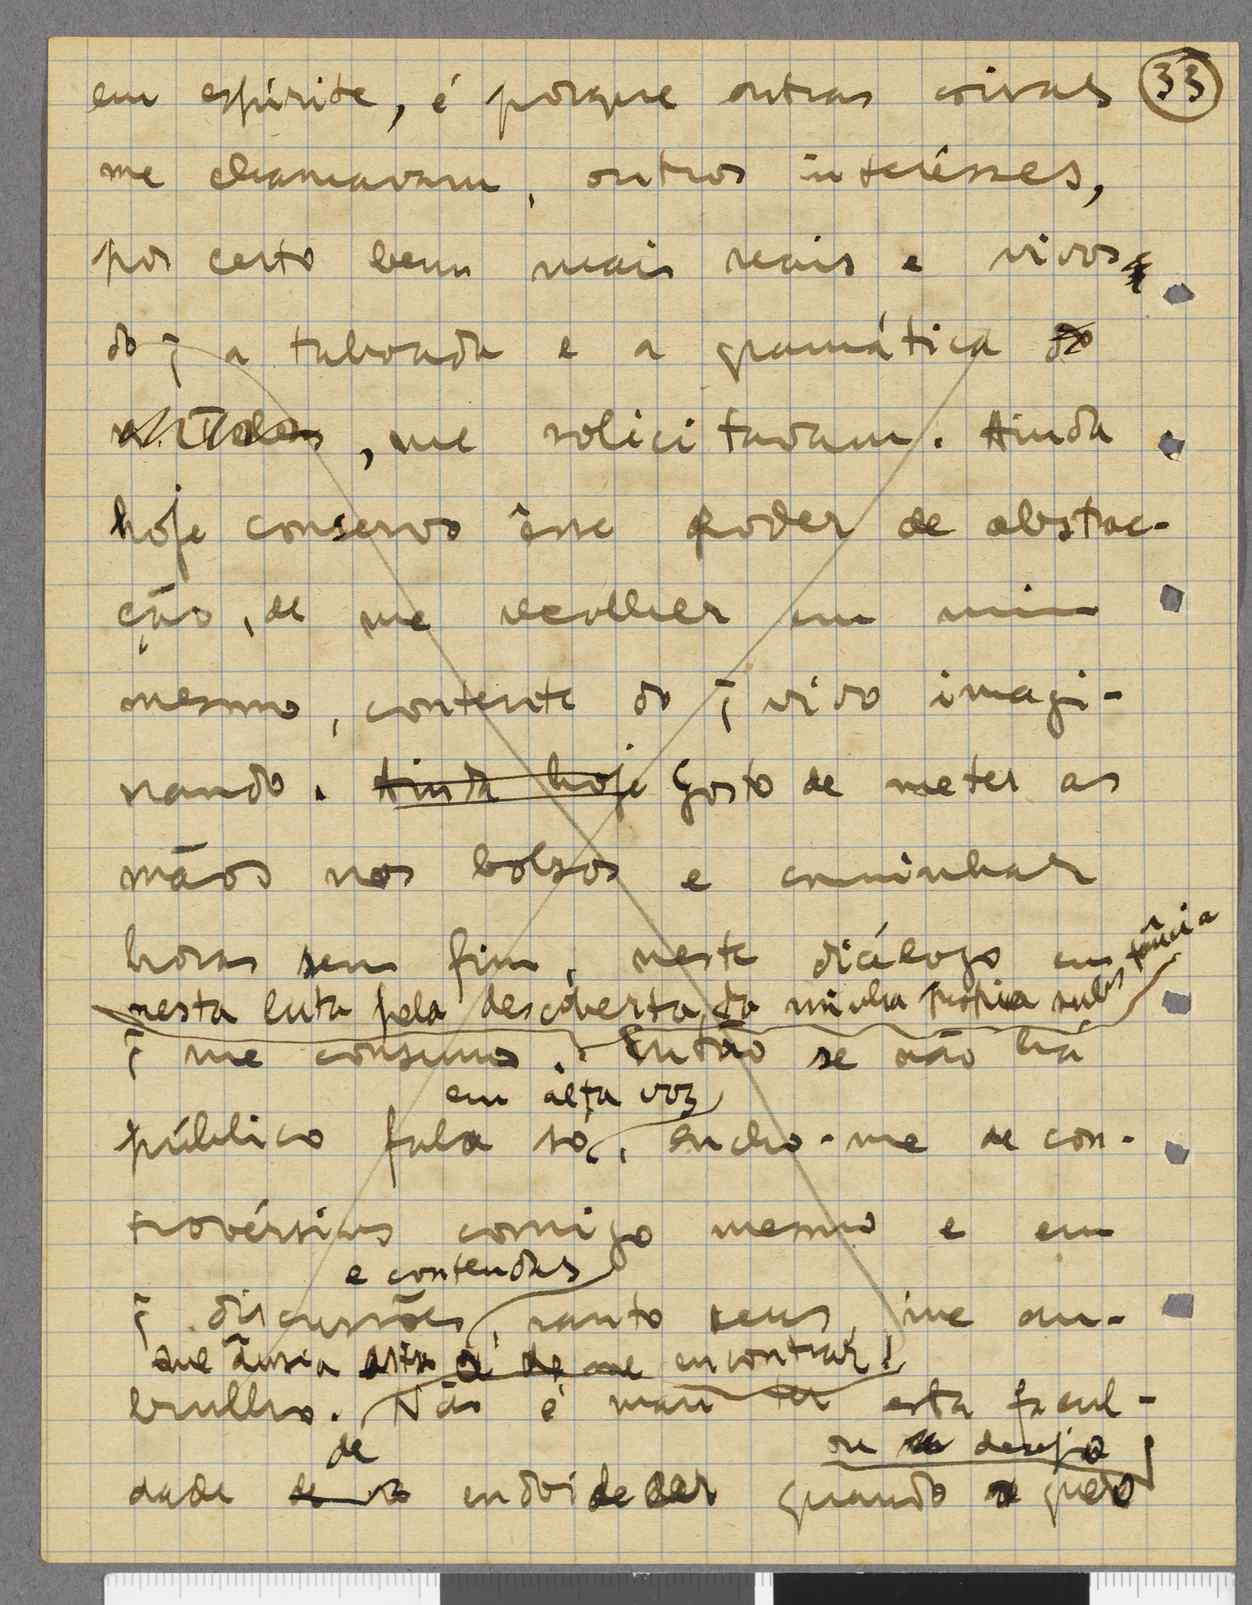 33
em espírito, é porque outras coisas
me chamavam, outros interêsses,
por certo bem mais reais e vivos
do q̃ a taboada e a gramática do
, me solicitavam. Ainda
hoje conservo êsse poder de abstrac-
ção, de me recolher em mim
mesmo, contente do q̃ vivo imagi-
nando. Ainda hoje Gosto de meter as
mãos nos bolsos e caminhar
horas sem fim, neste diálogo em
nesta luta pela descoberta da minha própria substância
q̃ me consumo. Então se não há
em alta voz
público falo só, encho-me de con-
trovérsias comigo mesmo e em
e contendas
q̃ discussões, santo Deus, me em-
que ânsia esta de me encontrar!
brulho. Não é mau ter esta facul-
de ou desejo
dade de endoidecer quando quero